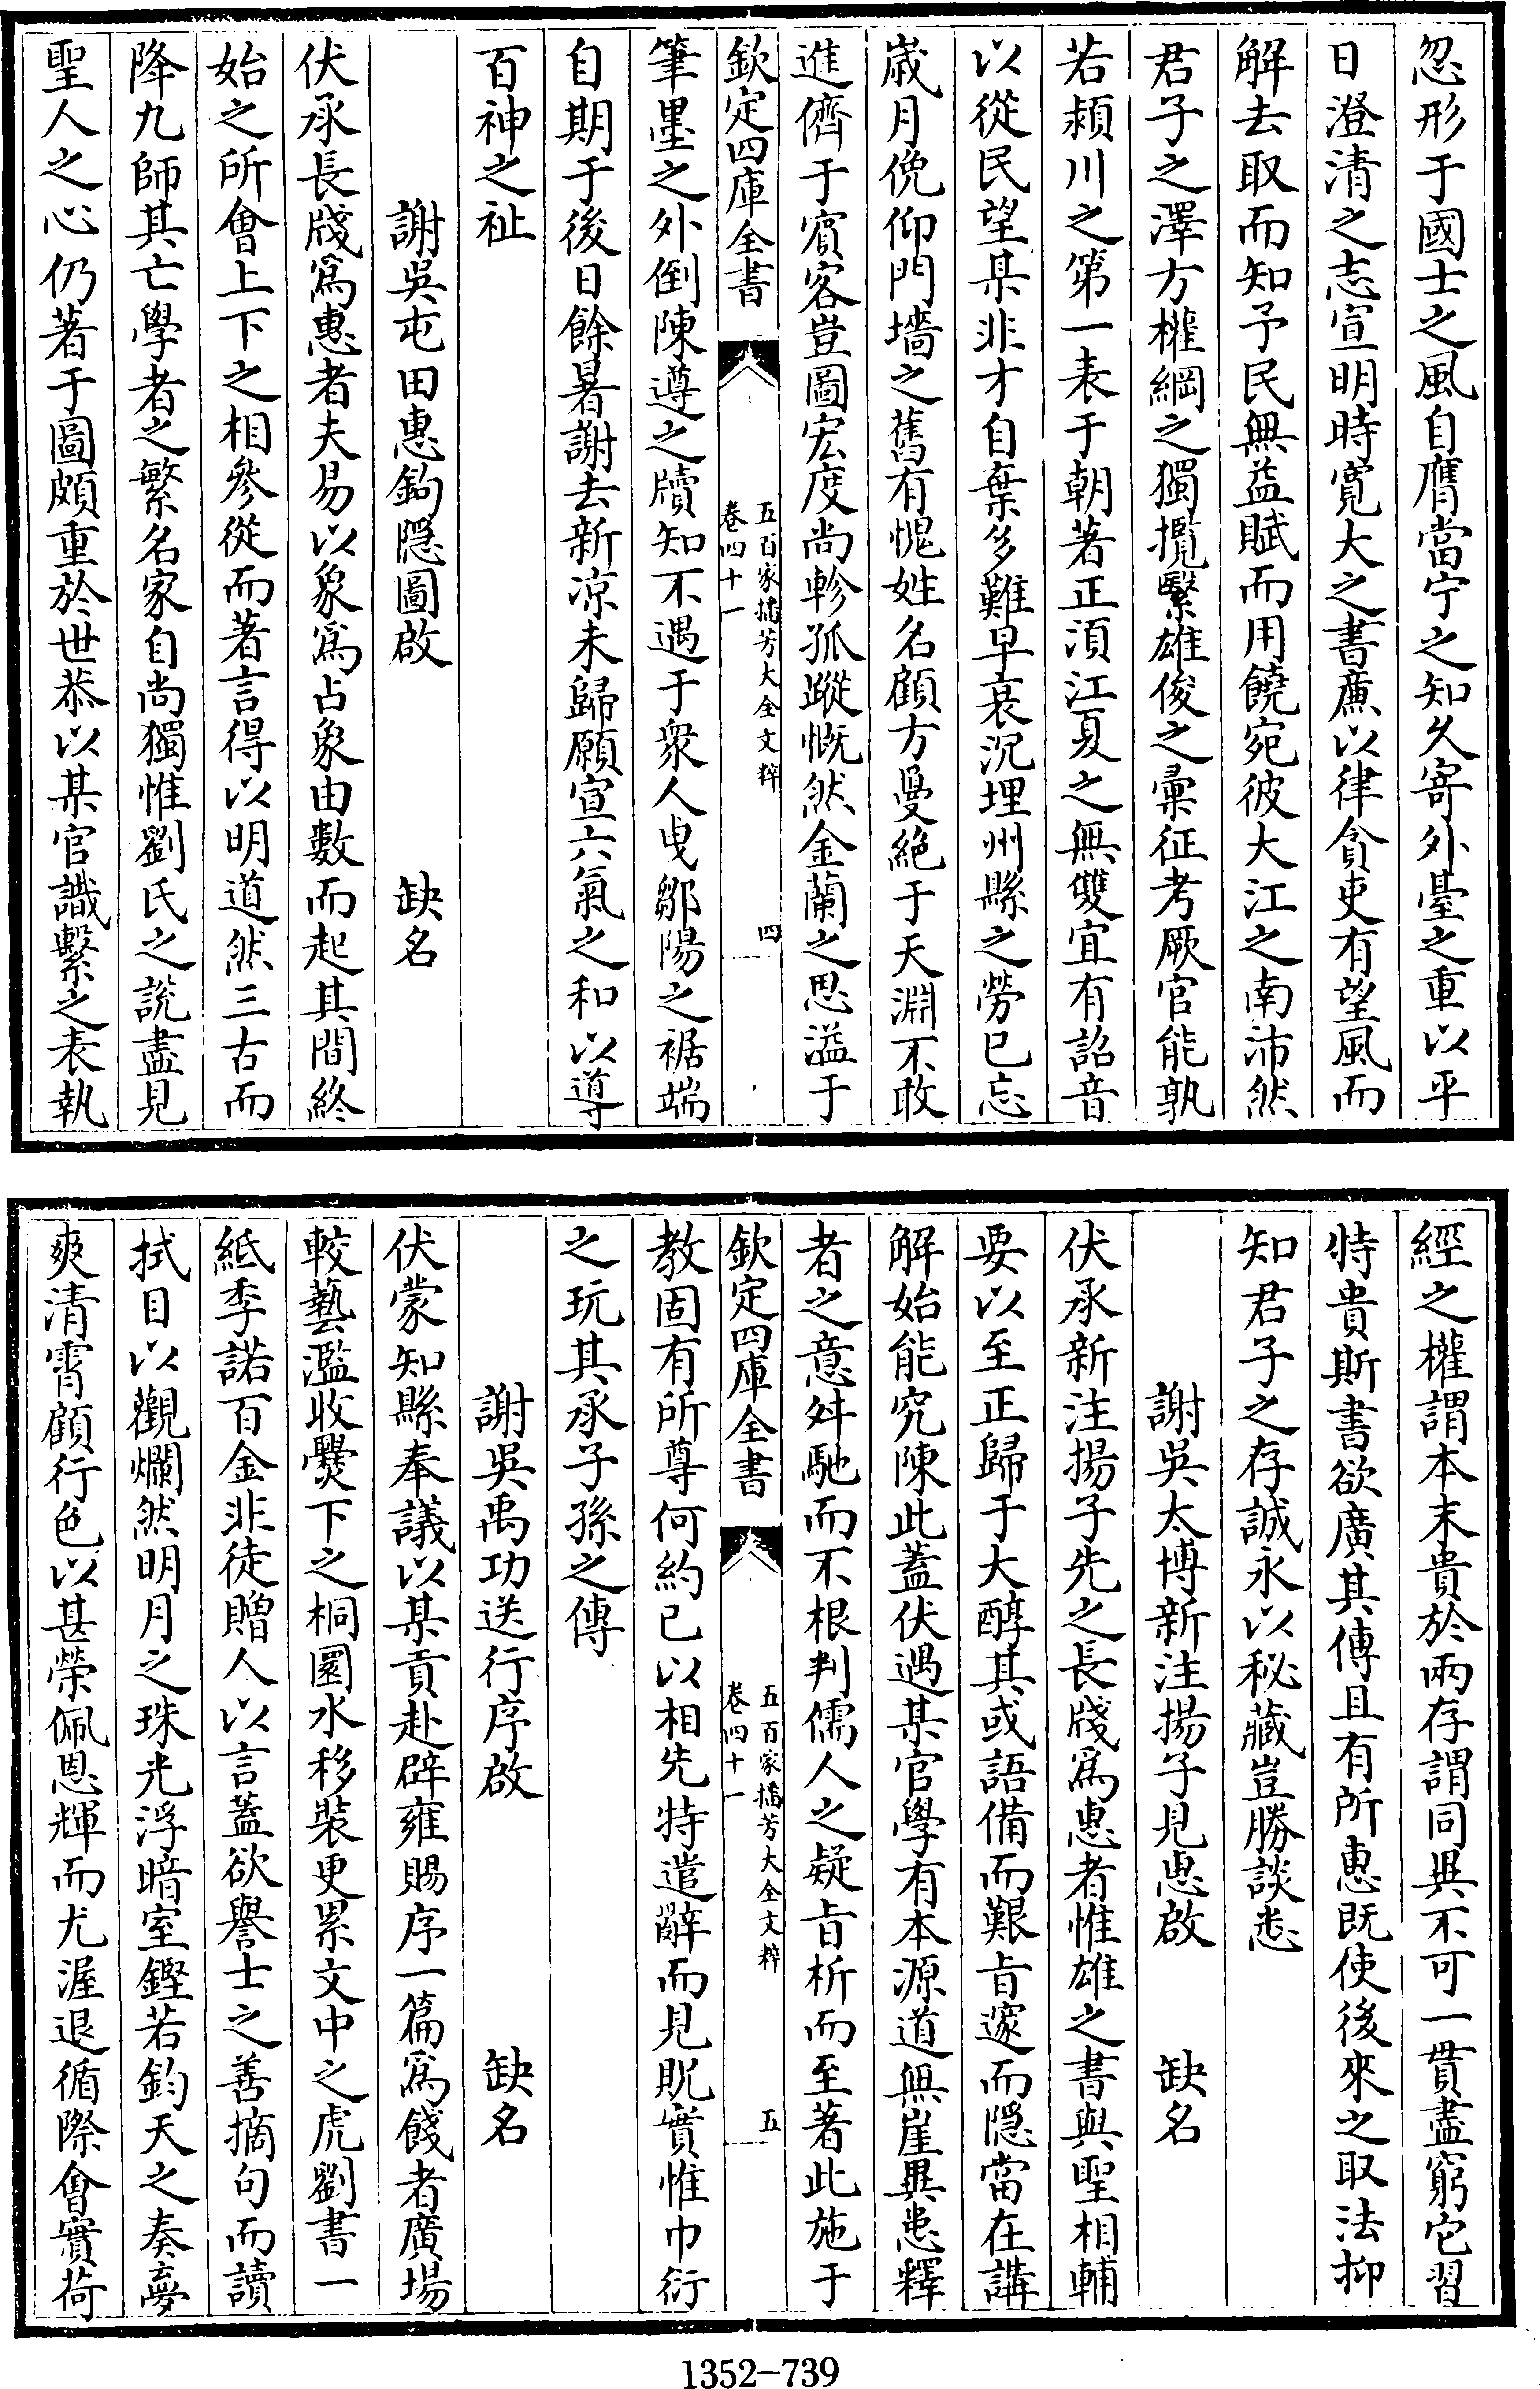 忽形于國士之風自膺當宁之知久寄外臺之重以平
日澄清之志宣明時寛大之書廉以律貪吏有望風而
解去取而知予民無益賦而用饒宛彼大江之南沛然
君子之澤方權綱之獨攬繄雄俊之彚征考厥官能孰
若潁川之第一表于朝著正湏江夏之無雙宜有詔音
以從民望某非才自棄多難早衰沉埋州縣之勞已忘
嵗月俛仰門墻之舊有愧姓名顧方曼絶于天淵不敢
進儕于賓客豈圖宏度尚軫孤蹤慨然金蘭之思溢于
欽定四庫全書
五百家播芳大全文粹
卷四十一
四
筆墨之外倒陳遵之牘知不遇于衆人曳鄒陽之裾端
自期于後日餘暑謝去新凉未歸願宣六氣之和以導
百神之祉
謝吳屯田惠鉤隠圖啟 缺名
伏承長牋為惠者夫易以象為占象由數而起其間終
始之所會上下之相參從而著言得以明道然三古而
降九師其亡學者之繁名家自尚獨惟劉氏之説盡見
聖人之心仍著于圖頗重於世恭以某官識繫之表執
經之權謂本末貴於兩存謂同異不可一貫盡窮它習
特貴斯書欲廣其傳且有所惠既使後來之取法抑
知君子之存誠永以秘藏豈勝談悉
謝吳太博新注揚子見惠啟 缺名
伏承新注揚子先之長牋為惠者惟雄之書與聖相輔
要以至正歸于大醇其或語備而艱㫖邃而隠當在講
解始能究陳此蓋伏遇某官學有本源道無崖異患釋
者之意舛馳而不根判儒人之疑㫖析而至著此施于
欽定四庫全書
五百家播芳大全文粹
卷四十一
五
教固有所尊何約已以相先特遣辭而見貺實惟巾衍
之玩其承子孫之傳
謝吳禹功送行序啟 缺名
伏蒙知縣奉議以某貢赴辟雍賜序一篇為餞者廣場
較藝濫收㸑下之桐園水移裝更累文中之虎劉書一
紙季諾百金非徒贈人以言蓋欲譽士之善摘句而讀
拭目以觀爛然明月之珠光浮暗室鏗若鈞天之奏夢
爽清霄顧行色以甚榮佩恩輝而尤渥退循際會實荷
1352-739